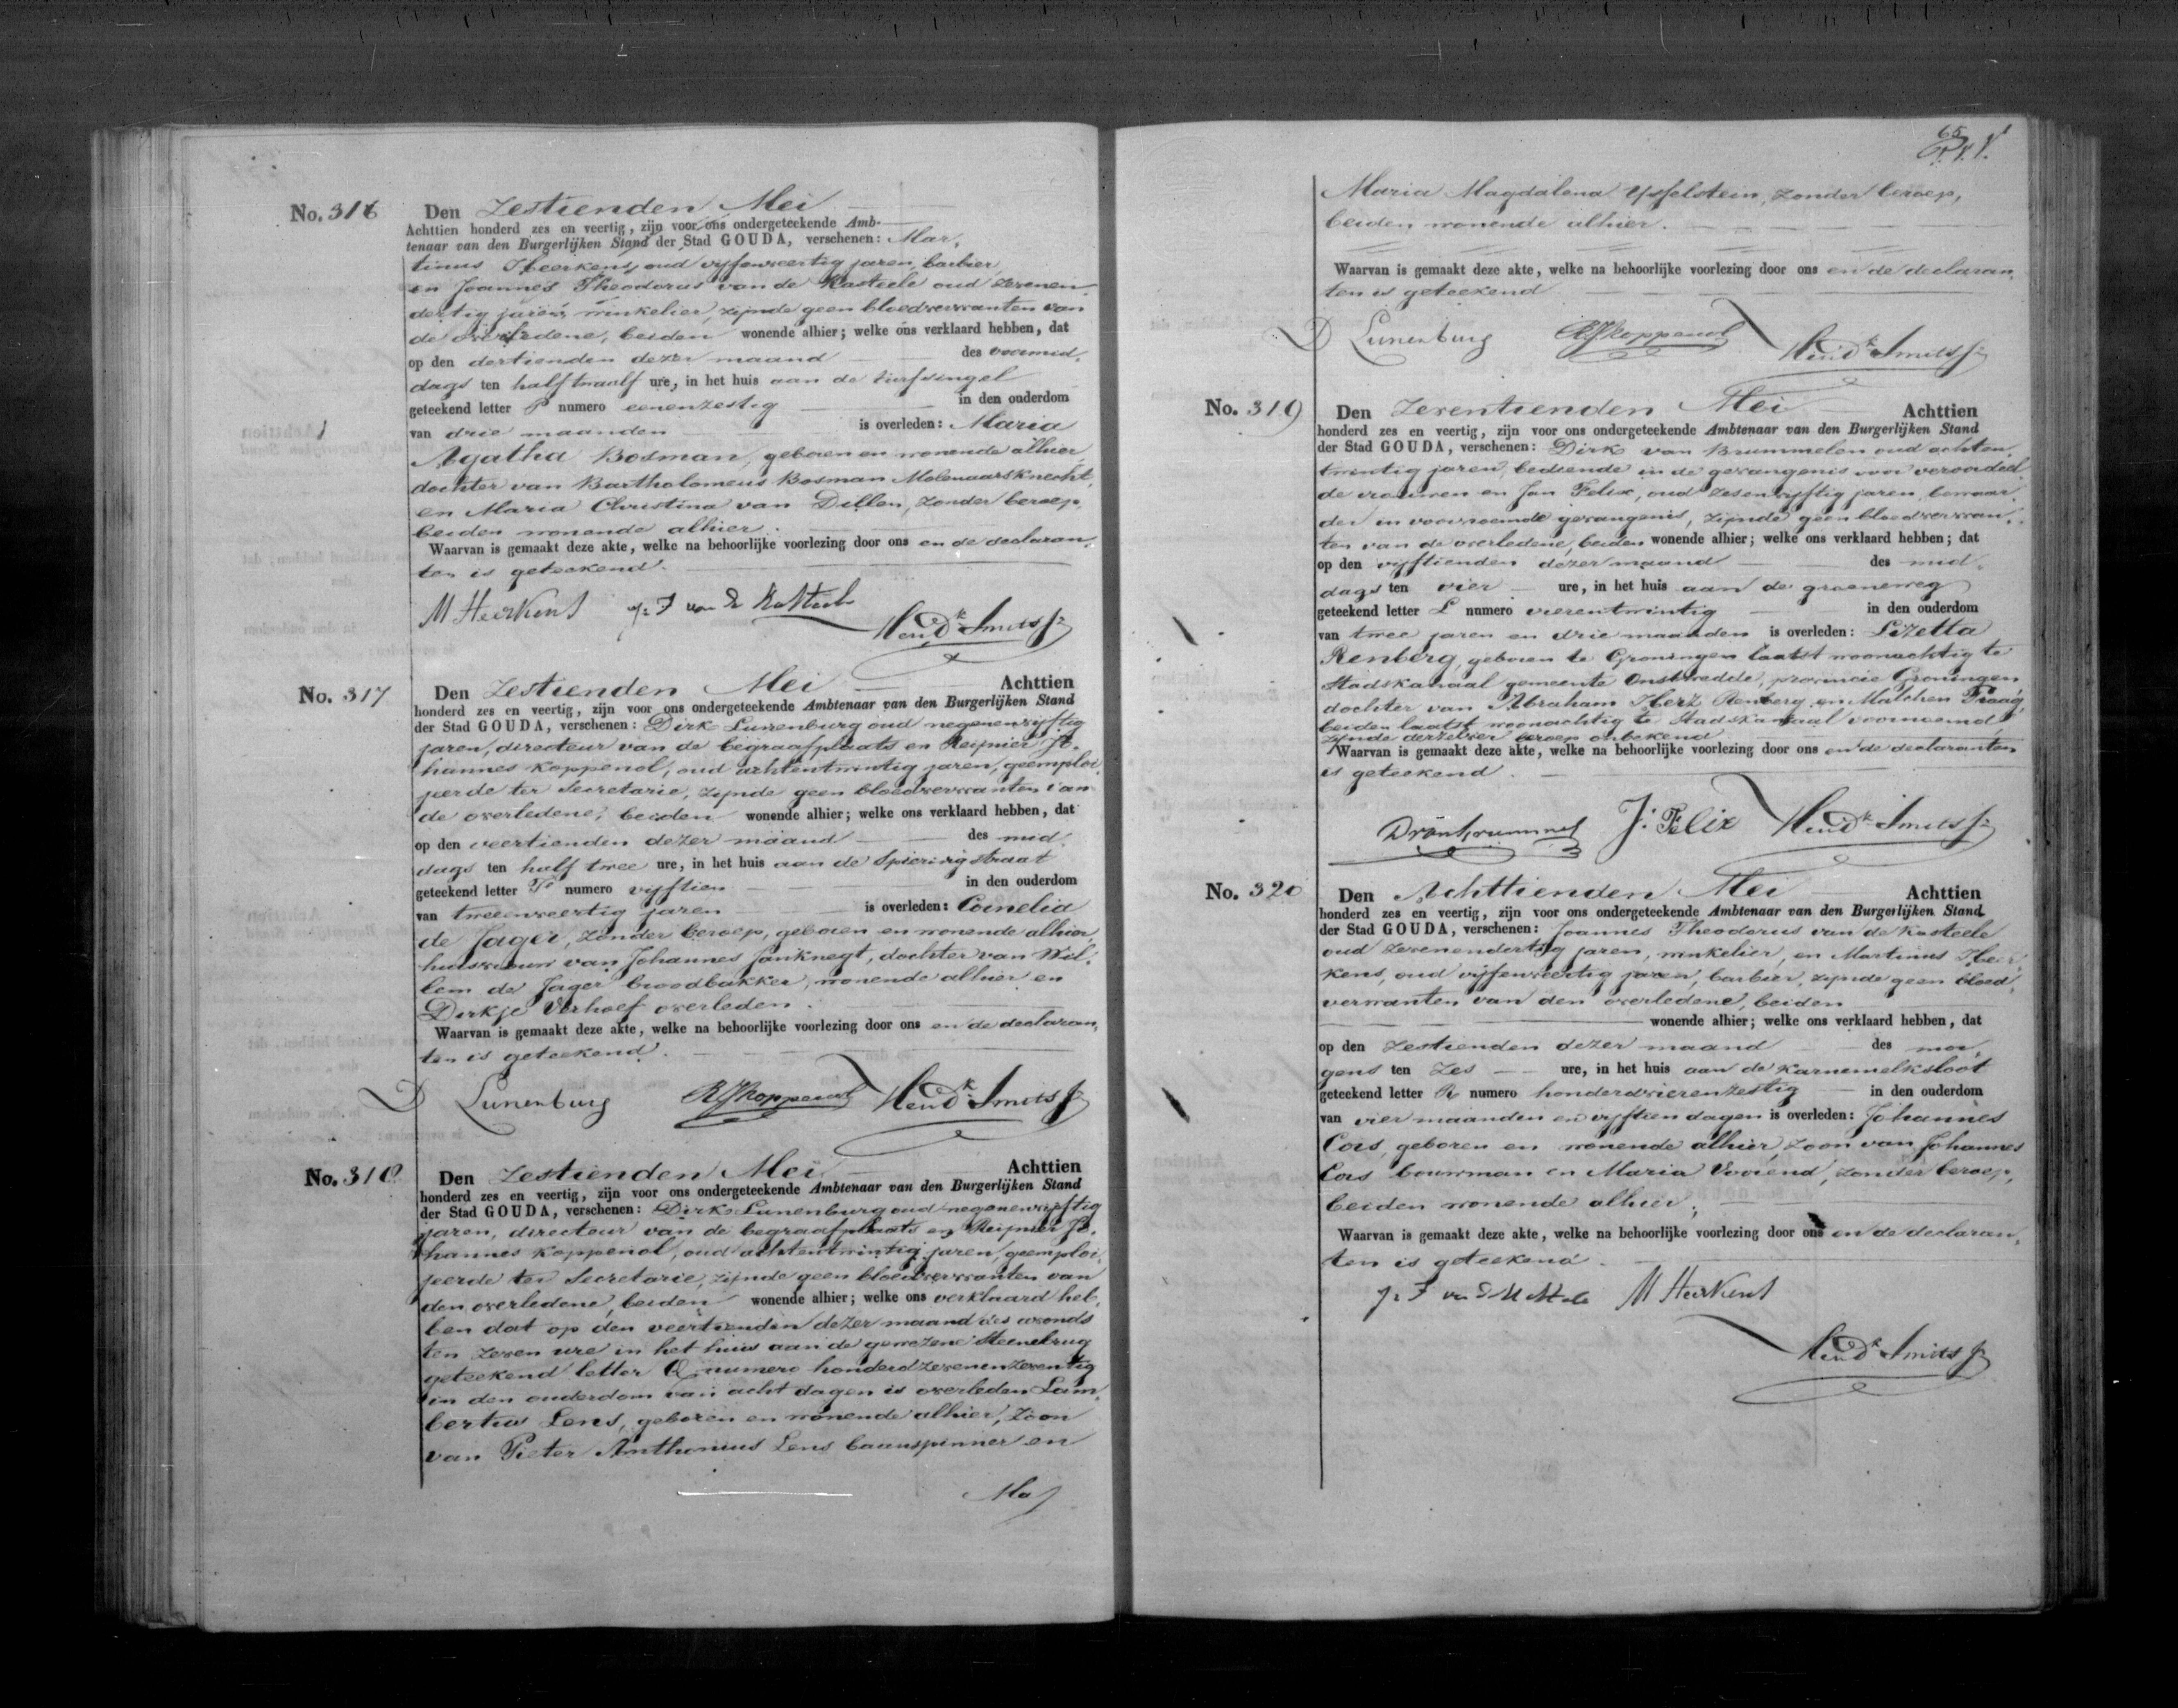 No. 316
Den Zestienden Mei
Achttien honderd zes en veertig, zijn voor ons ondergeteekende Amb-
tenaar van den Burgerlijken Stand der Stad GOUDA, verschenen: Mar,
tinus Heerkens, oud vijfenveertig jaren, barbier,
en Joannes Theodorus van de Kasteele oud zevenen
dertig jaren, winkelier, zijnde geen bloedverwanten van
de overledene, beiden wonende alhier; welke ons verklaard hebben, dat
op den dertienden dezer maand des voormid,
dags ten half twaalf ure, in het huis aan de turfsingel
geteekend letter P numero eenenzestig in den ouderdom
van drie maanden is overleden: Maria
Agatha Bosman, geboren en wonende alhier,
dochter van Bartholomeus Bosman Molenaarsknecht,
en Maria Christina van Dillen, zonder beroep,
beiden wonende alhier.
Waarvan is gemaakt deze akte, welke na behoorlijke voorlezing door ons en de declaran,
ten is geteekend.
M Heerkens J: T van de Kasteele Hendk Smits Jr
No. 317
Den Zestienden Mei Achttien
honderd zes en veertig, zijn voor ons ondergeteekende Ambtenaar van den Burgerlijken Stand
der Stad GOUDA, verschenen: Dirk Lunenburg oud negenenvijftig
jaren, directeur van de begraafplaats en Reijnier Jo,
hannes Koppenol, oud achtentwintig jaren, geemploi,
jeerde ter Secretarie, zijnde geen bloedverwanten van
de overledene, beiden wonende alhier; welke ons verklaard hebben, dat
op den veertienden dezer maand des mid,
dags ten half twee ure, in het huis aan de Spieringstraat
geteekend letter P numero vijftien in den ouderdom
van tweeenveertig jaren is overleden: Cornelia
de Jager, zonder beroep, geboren en wonende alhier,
huisvrouw van Johannes Janknegt, dochter van Wil,
lem de Jager broodbakker, wonende alhier en
Dirkje Verhoef overleden.
Waarvan is gemaakt deze akte, welke na behoorlijke voorlezing door ons en de declaran,
ten is geteekend.
D Lunenburg RJKoppenol Hendk Smits Jr
No. 318
Den Zestienden Mei Achttien
honderd zes en veertig, zijn voor ons ondergeteekende Ambtenaar van den Burgerlijken Stand
der Stad GOUDA, verschenen: Dirk Lunenburg oud negenenvijftig
jaren, directeur van de begraafplaats en Reijnier Jo,
hannes Koppenol, oud achtentwintig jaren, geemploi,
jeerde ter Secretarie, zijnde geen bloedverwanten van
den overledene, beiden wonende alhier; welke ons verklaard heb,
ben dat op den veertienden dezer maand des avonds
ten zeven ure in het huis aan de gewezene Steenebrug
geteekend letter Q numero honderdzevenenzeventig
in den ouderdom van acht dagen is overleden Lam,
bertus Lens, geboren en wonende alhier, zoon
van Pieter Anthonius Lens baanspinner en
Ma
65
Maria Magdalena Ysselstein, zonder beroep,
beiden wonende alhier.
Waarvan is gemaakt deze akte, welke na behoorlijke voorlezing door ons en de declaran,
ten is geteekend
D Lunenburg RJKoppenol Hendk Smits Jr
No. 319
Den Zeventienden Mei Achttien
honderd zes en veertig, zijn voor ons ondergeteekende Ambtenaar van den Burgerlijken Stand
der Stad GOUDA, verschenen: Dirk van Brummelen oud achten,
twintig jaren, bediende in de gevangenis voor veroordeel,
de vrouwen en Jan Felix, oud zesenvijftig jaren, bewaar,
der in voornoemde gevangenis, zijnde geen bloedverwan,
ten van de overledene, beiden wonende alhier; welke ons verklaard hebben; dat
op den vijftienden dezer maand des mid,
dags ten vier ure, in het huis aan de groeneweg
geteekend letter L numero vierentwintig in den ouderdom
van twee jaren en drie maanden is overleden: Lizetta
Renberg, geboren te Groningen laatst woonachtig te
Stadskanaal gemeente Onstwedde, provincie Groningen
dochter van Abraham Herz Renberg en Malchen
beiden laatst woonachtig te Stadskanaal voornoemd
zijnde derzelver beroep onbekend
Waarvan is gemaakt deze akte, welke na behoorlijke voorlezing door ons en de declaranten
is geteekend.
J: Felix Hendk Smits Jr
No. 320
Den Achttienden Mei Achttien
honderd zes en veertig, zijn voor ons ondergeteekende Ambtenaar van den Burgerlijken Stand
der Stad GOUDA, verschenen: Joannes Theodorus van de Kasteele
oud zevenendertig jaren, winkelier, en Martinus Heer,
kens, oud vijfenveertig jaren, barbier, zijnde geen bloed,
verwanten van den overledene, beiden
wonende alhier; welke ons verklaard hebben, dat
op den zestienden dezer maand des mor,
gens ten zes ure, in het huis aan de Karnemelksloot
geteekend letter R numero honderdvierenzestig in den ouderdom
van vier maanden en vijftien dagen is overleden: Johannes
Cors, geboren en wonende alhier, zoon van Johannes
Cors bouwman en Maria Vooiend, zonder beroep,
beiden wonende alhier.
Waarvan is gemaakt deze akte, welke na behoorlijke voorlezing door ons en de declaran,
ten is geteekend.
J: T van de Kasteele M Heerkens
Hendk Smits Jr